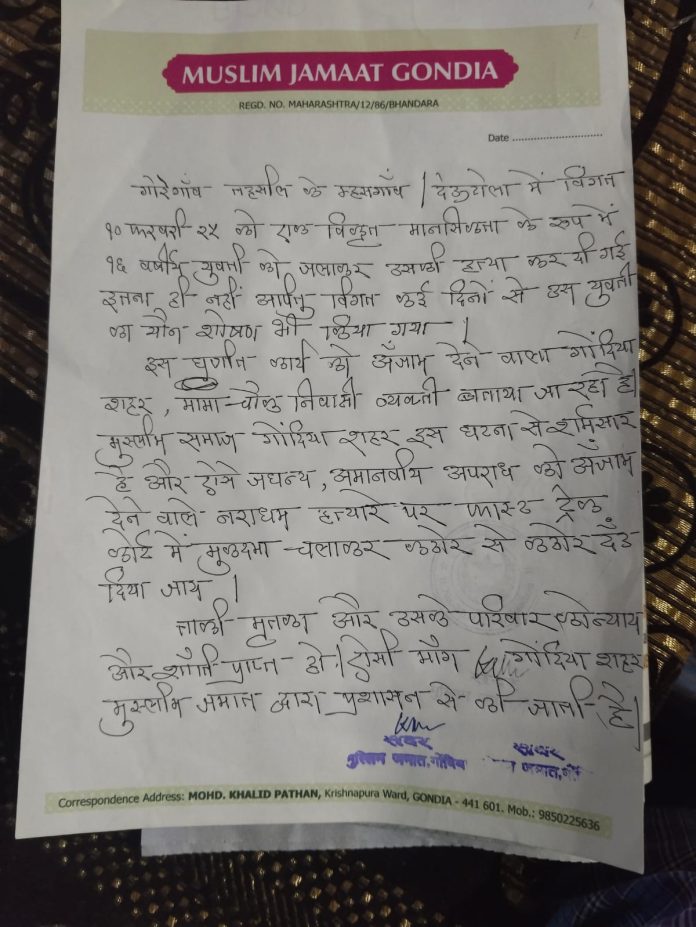 MUSLIM JAMAAT GONDIA
REGD. NO. MAHARASHTRA/12/86/BHANDARA
Date ..............................
गोरेगाँव तहसील के म्हसगाँव / देऊटोला में विगत
१० फरवरी २५ को एक विकृत मानसिकता के रूप में
१६ वर्षीय युवती को जलाकर उसकी हत्या कर दी गई
इतना ही नहीं अपितु विगत कई दिनों से उस युवती
का यौन शोषण भी किया गया |
इस घृणीत कार्य को अँजाम देने वाला गोंदिया
शहर, मामा चौक निवासी व्यक्ती बताया जा रहा है|
मुस्लीम समाज गोंदिया शहर इस घटना से शर्मसार
है और ऐसे जघन्य, अमानवीय अपराध को अँजाम
देने वाले नराधम हत्यारे पर फास्ट ट्रेक
कोर्ट में मुकदमा चलाकर कठोर से कठोर दँड
दिया जाय |
ताकी मृतका और उसके परिवार को न्याय
और शाँती प्राप्त हो| ऐसी माँग गोंदिया शहर
मुस्लीम जमात द्वारा प्रशासन से की जाती है|
सदर
मुस्लिम जमात, गोंदिया
सदर
जमात,
Correspondence Address: MOHD. KHALID PATHAN, Krishnapura Ward, GONDIA - 441 601. Mob.: 9850225636